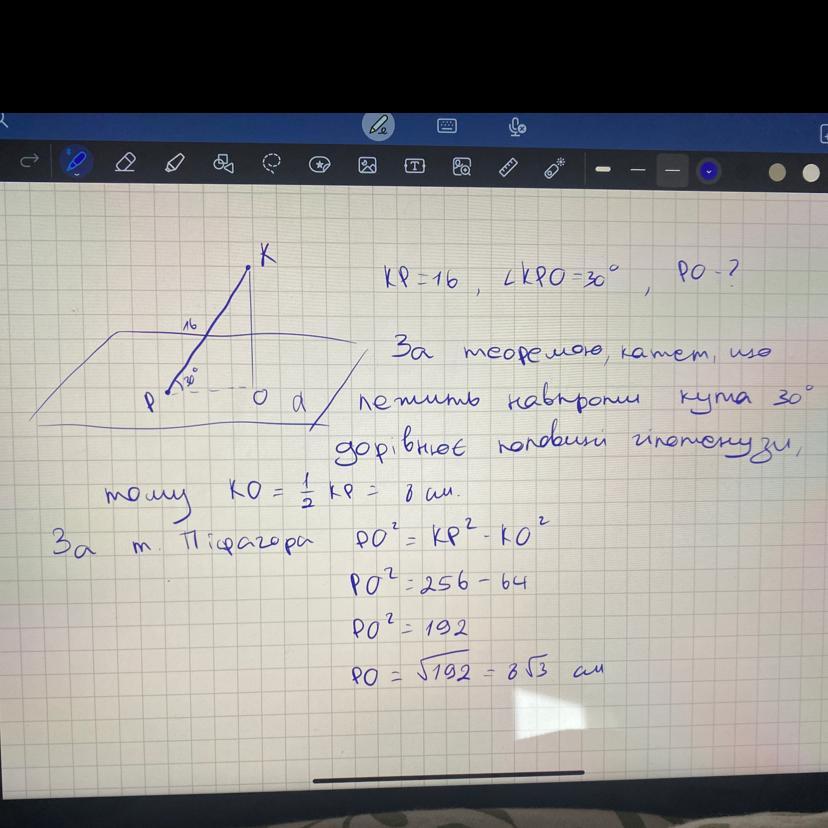 K
16
30°
P
O
α
KP = 16 , ∠KPO = 30° , PO - ?
За теоремою, катет, що
лежить навпроти кута 30°
дорівнює половині гіпотенузи,
тому KO = 1/2 KP = 8 см.
За т. Піфагора PO² = KP² - KO²
PO² = 256 - 64
PO² = 192
PO = √192 = 8√3 см